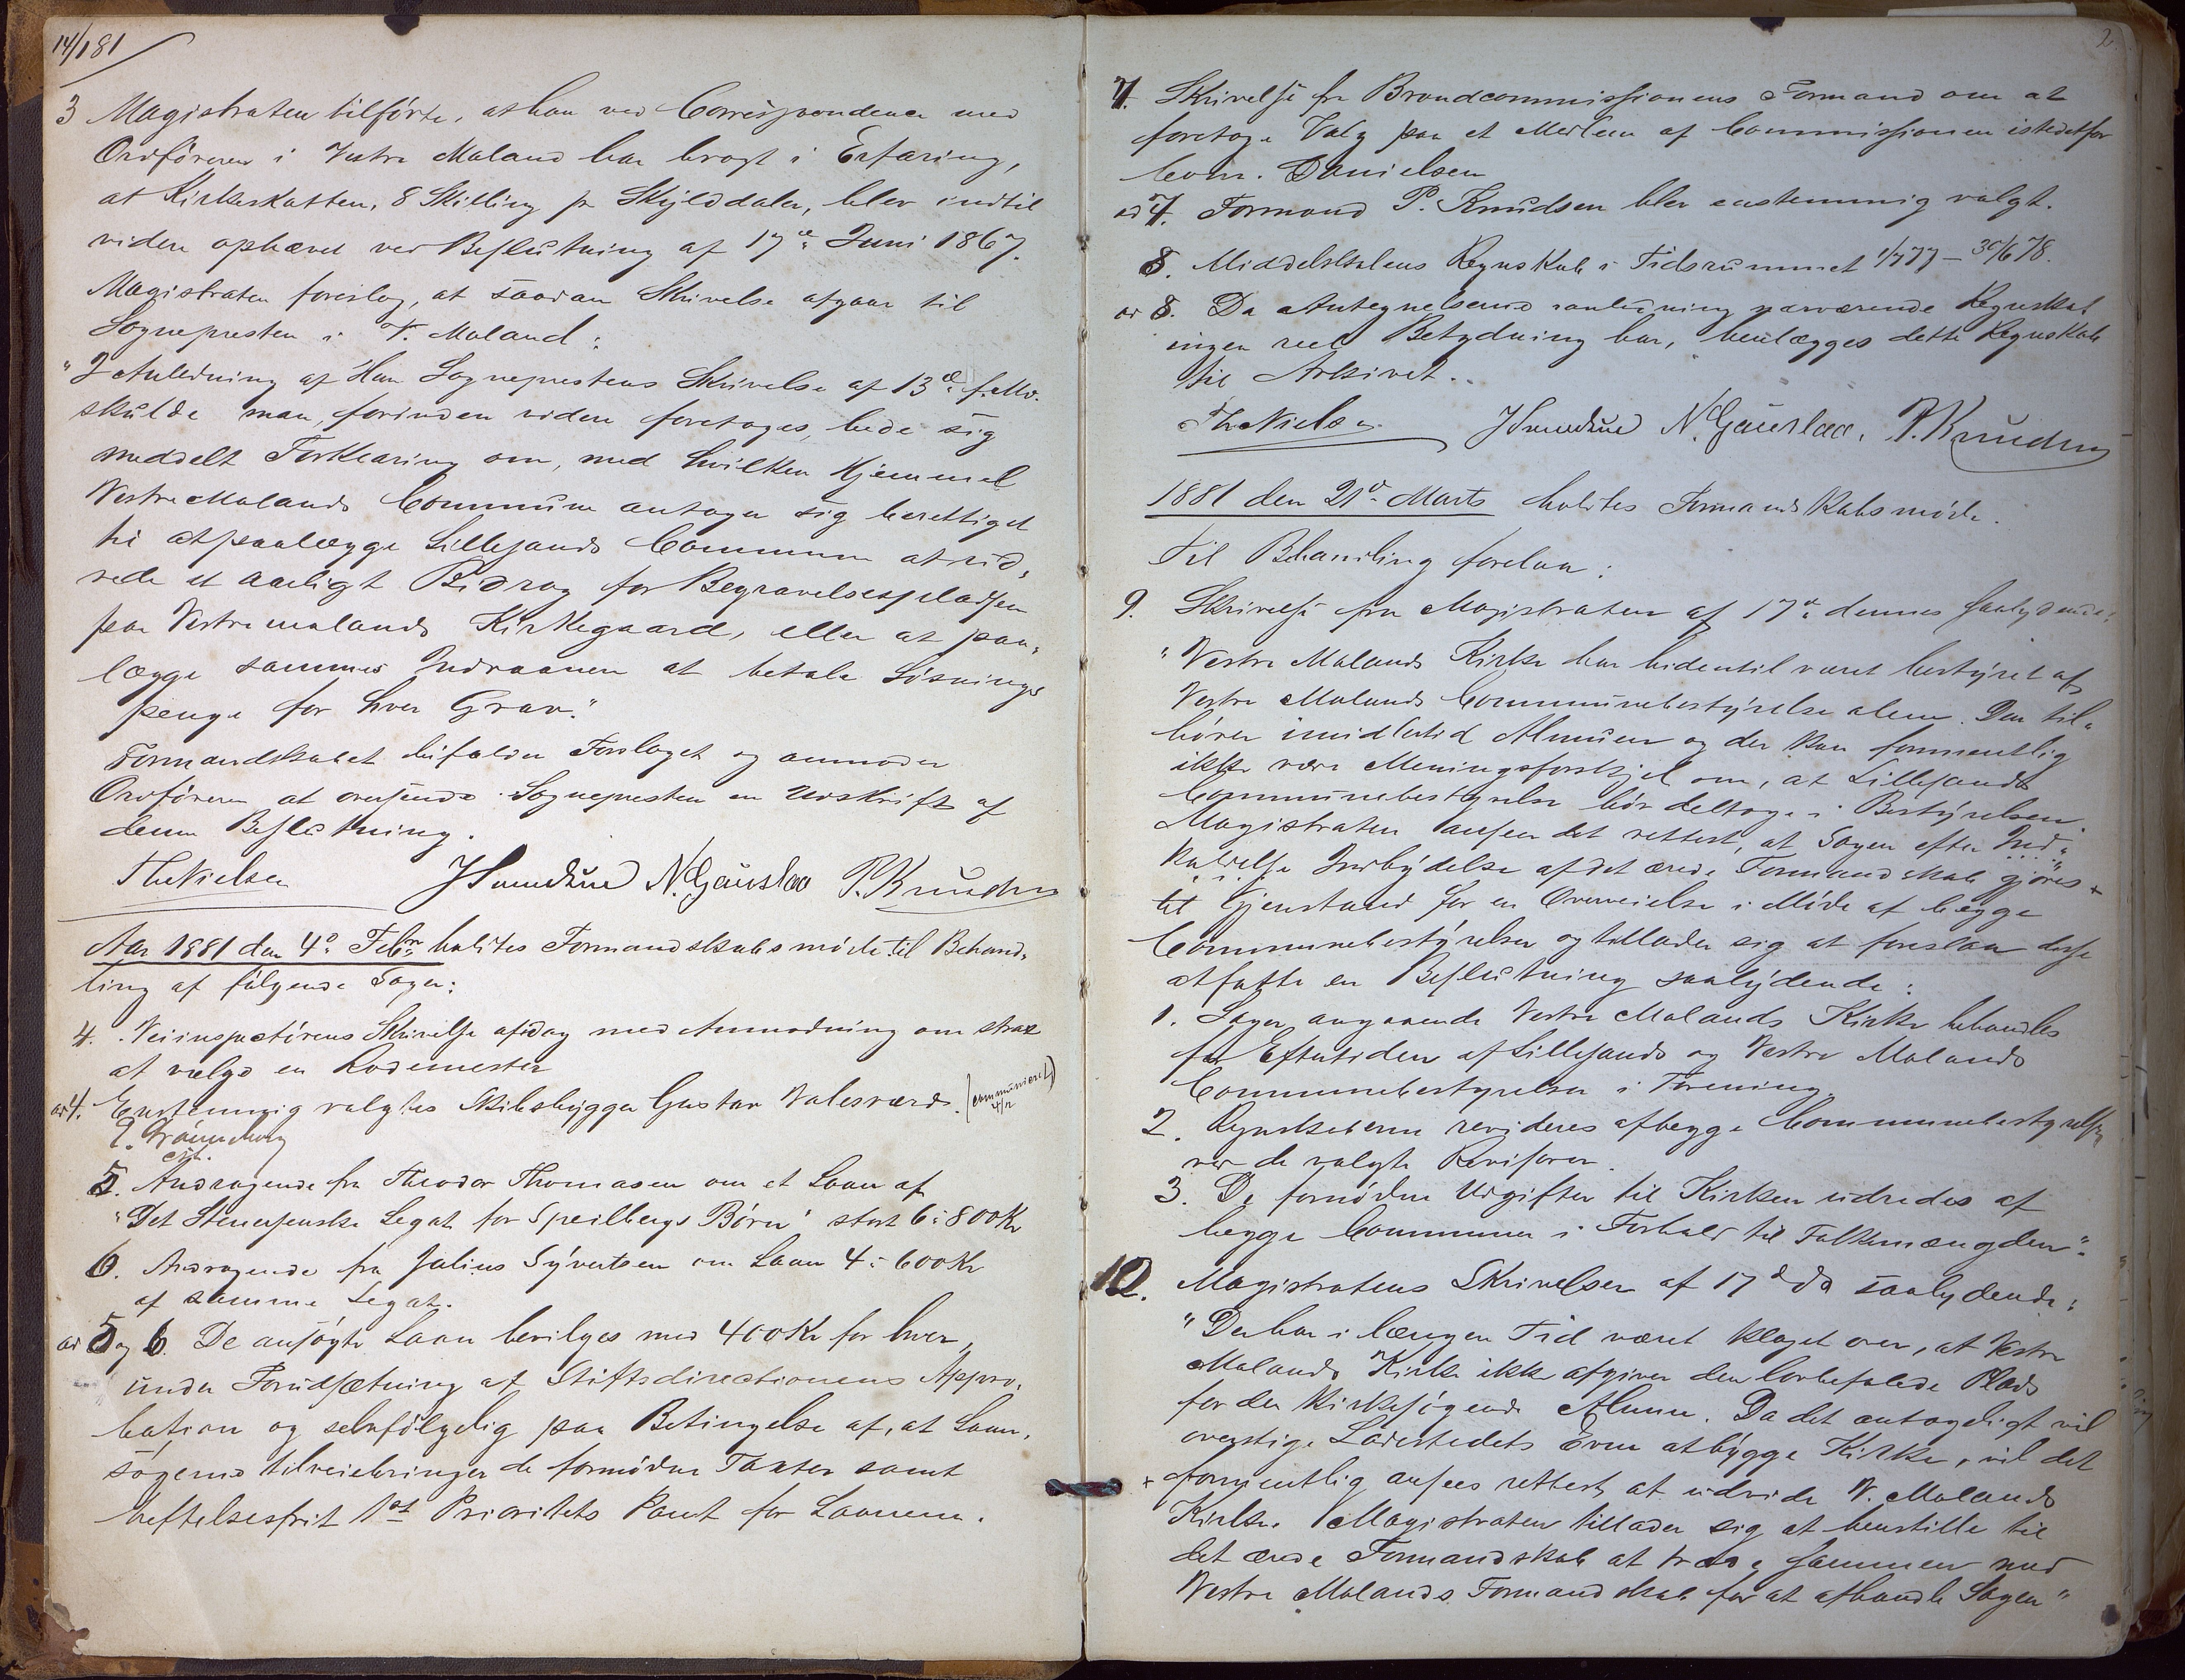 14/1 81
3 Magistraten tilførte, at han ved Correspondence med
Ordføreren i Vestre Moland har bragt i Erfaring,
at Kirkeskatten, 8 Skilling pr Skylddaler, blev indtil
videre ophævet ved Beslutning af 17de Juni 1867.
Magistraten foreslog, at saadan Skrivelse afgaar til
Sognepresten i V. Moland:
"I Anledning af Hr. Sogneprestens Skrivelse af 13de f. Md.
skulde man, forinden videre foretages, bede sig
meddelt Forklaring om, med hvilken Hjemmel
Vestre Molands Commune antager sig berettiget
til at paalægge Lillesands Commune at ud-
rede et aarligt Bidrag for Begravelsespladsen
paa Vestre Molands Kirkegaard, eller at paa-
lægge sammes Indvaanere at betale Løsnings
penge for hver Grav."
Formandskabet bifalder Forslaget og anmoder
Ordføreren at oversende Sognepresten en Udskrift af
denne Beslutning.
Th Nielsen N. Gauslaa P. Knudsen
Aar 1881 den 4de Febr holdtes Formandskabsmøde til Behand-
ling af følgende Sager:
4. Veiinspectørens Skrivelse af idag med Anmodning om strax
at vælge en Rodemester
ad 4. Enstemmig valgtes Skibsbygger Gustav Valesværd. (communiceret 4/2)
E. Grønneberg
cst.
5. Andragende fra Theodor Thomasen om et Laan af
"Det Stenersenske Legat for Speilbergs Børn" stort 6 à 800 Kr
6. Andragende fra Julius Syvertsen om Laan 4 à 600 Kr
af samme Legat.
ad 5 og 6. De ansøgte Laan bevilges med 400 Kr for hver,
under Forudsætning af Stiftsdirectionens Appro-
bation og selvfølgelig paa Betingelse af, at Laan-
søgerne tilveiebringer de fornødne Taxter samt
heftelsesfrit 1st Prioritets Pant for Laanene.
2.
7. Skrivelse fra Brandcommissionens Formand om at
foretage Valg paa et Medlem af Commissionen istedetfor
Corn. Danielsen
ad 7. Formand P. Knudsen blev enstemmig valgt.
8. Middelskolens Regnskab i Tidsrummet 1/7 77 – 30/6 78.
ad 8. Da Antegnelserne i anledning nærværende Regnskab
ingen reel Betydning har, henlægges dette Regnskab
til Arkivet.
Th Nielsen N. Gauslaa. P. Knudsen
1881 den 21de Marts holdtes Formandskabsmøde.
Til Behandling forelaa:
9. Skrivelse fra Magistraten af 17de dennes saalydende:
"Vestre Molands Kirke har hidentil været bestyret af
Vestre Molands Communebestyrelse alene. Den til-
hører imidlertid Almuen og der kan formentlig
ikke være Meningsforskjel om, at Lillesands
Communebestyrelse bør deltage i Bestyrelsen.
Magistraten anseer det rettest, at Sagen efter Ind-
kaldelse Indbydelse af det ærede Formandskab gjøres
til Gjenstand for en Overveielse i Møde af begge
Communebestyrelser og tillader sig at foreslaa disse
at fatte en Beslutning saalydende:
1. Sager angaaende Vestre Molands Kirke behandles
for Eftertiden af Lillesands og Vestre Molands
Communebestyrelser i Forening
2. Regnskaberne revideres af begge Communebestyrelser
ved de valgte Revisorer.
3. De fornødne Udgifter til Kirken udredes af
begge Communer i Forhold til Folkemængden".
10. Magistratens Skrivelser af 17de ds saalydende:
"Der har i længere Tid været klaget over, at Vestre
Molands Kirke ikke afgiver den lovbefalede Plads
for den Kirkesøgende Almue. Da det antageligt vil
overstige Ladestedets Evne at bygge Kirke, vil det
formentlig ansees rettest at udvide V. Molands
Kirke. Magistraten tillader sig at henstille til
det ærede Formandskab at træde sammen med
Vestre Molands Formandskab for at afhandle Sagen"